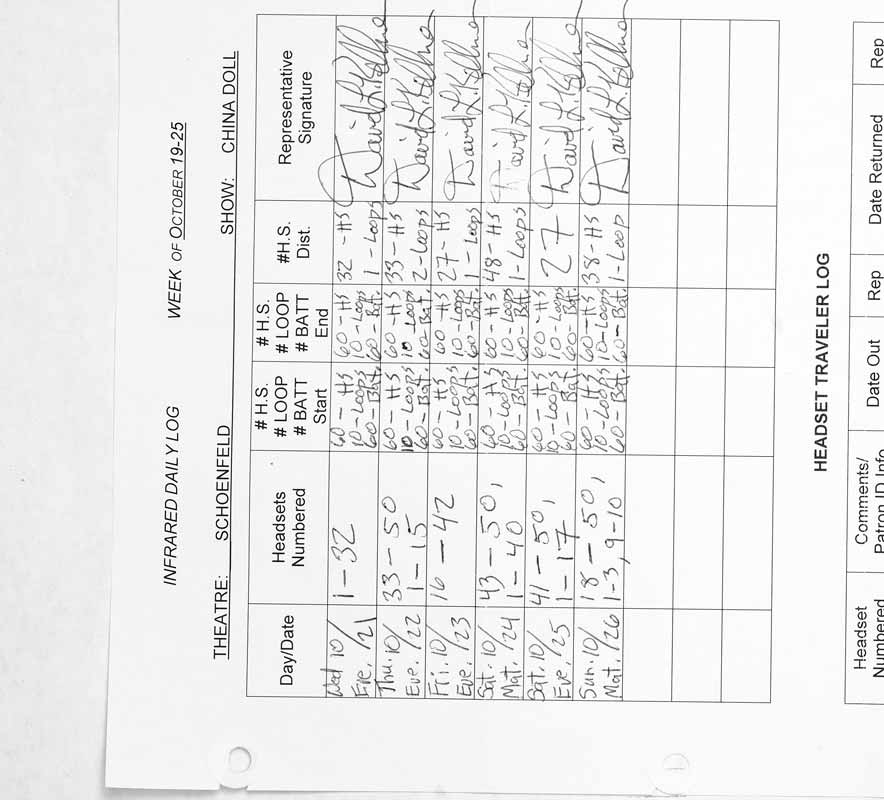 INFRARED DAILY LOG WEEK OF OCTOBER 19-25
THEATRE: SCHOENFELD SHOW: CHINA DOLL
Day/Date
Headsets
Numbered
# H.S.
# LOOP
# BATT
Start
# H.S.
# LOOP
# BATT
End
#H.S.
Dist.
Representative
Signature
Wed 10/
Eve. /21
1-32
60 - HS
10-Loops
60-Bat.
60 - HS
10-Loops
60-Bat.
32 - HS
1 - Loops
Thu. 10/
Eve. /22
33 - 50
1 - 15
60 - HS
10-Loops
60-Bat.
60 - HS
10-Loops
60-Bat.
33 - HS
2-Loops
Fri. 10/
Eve. /23
16 - 42
60 - HS
10-Loops
60-Bat.
60 - HS
10-Loops
60-Bat.
27 - HS
1 - Loops
Sat. 10/
Mat. /24
43 - 50,
1 - 40
60 - HS
10-Loops
60-Bat.
60 - HS
10-Loops
60-Bat.
48 - HS
1-Loops
Sat. 10/
Eve. /25
41 - 50,
1 - 17
60 - HS
10-Loops
60-Bat.
60 - HS
10-Loops
60-Bat.
27
Sun. 10/
Mat. /26
18 - 50,
1-3, 9-10
60 - HS
10-Loops
60-Bat.
60 - HS
10-Loops
60-Bat.
38-HS
1-Loop
HEADSET TRAVELER LOG
Headset
Numbered
Comments/
Patron ID Info
Date Out
Rep
Date Returned
Rep